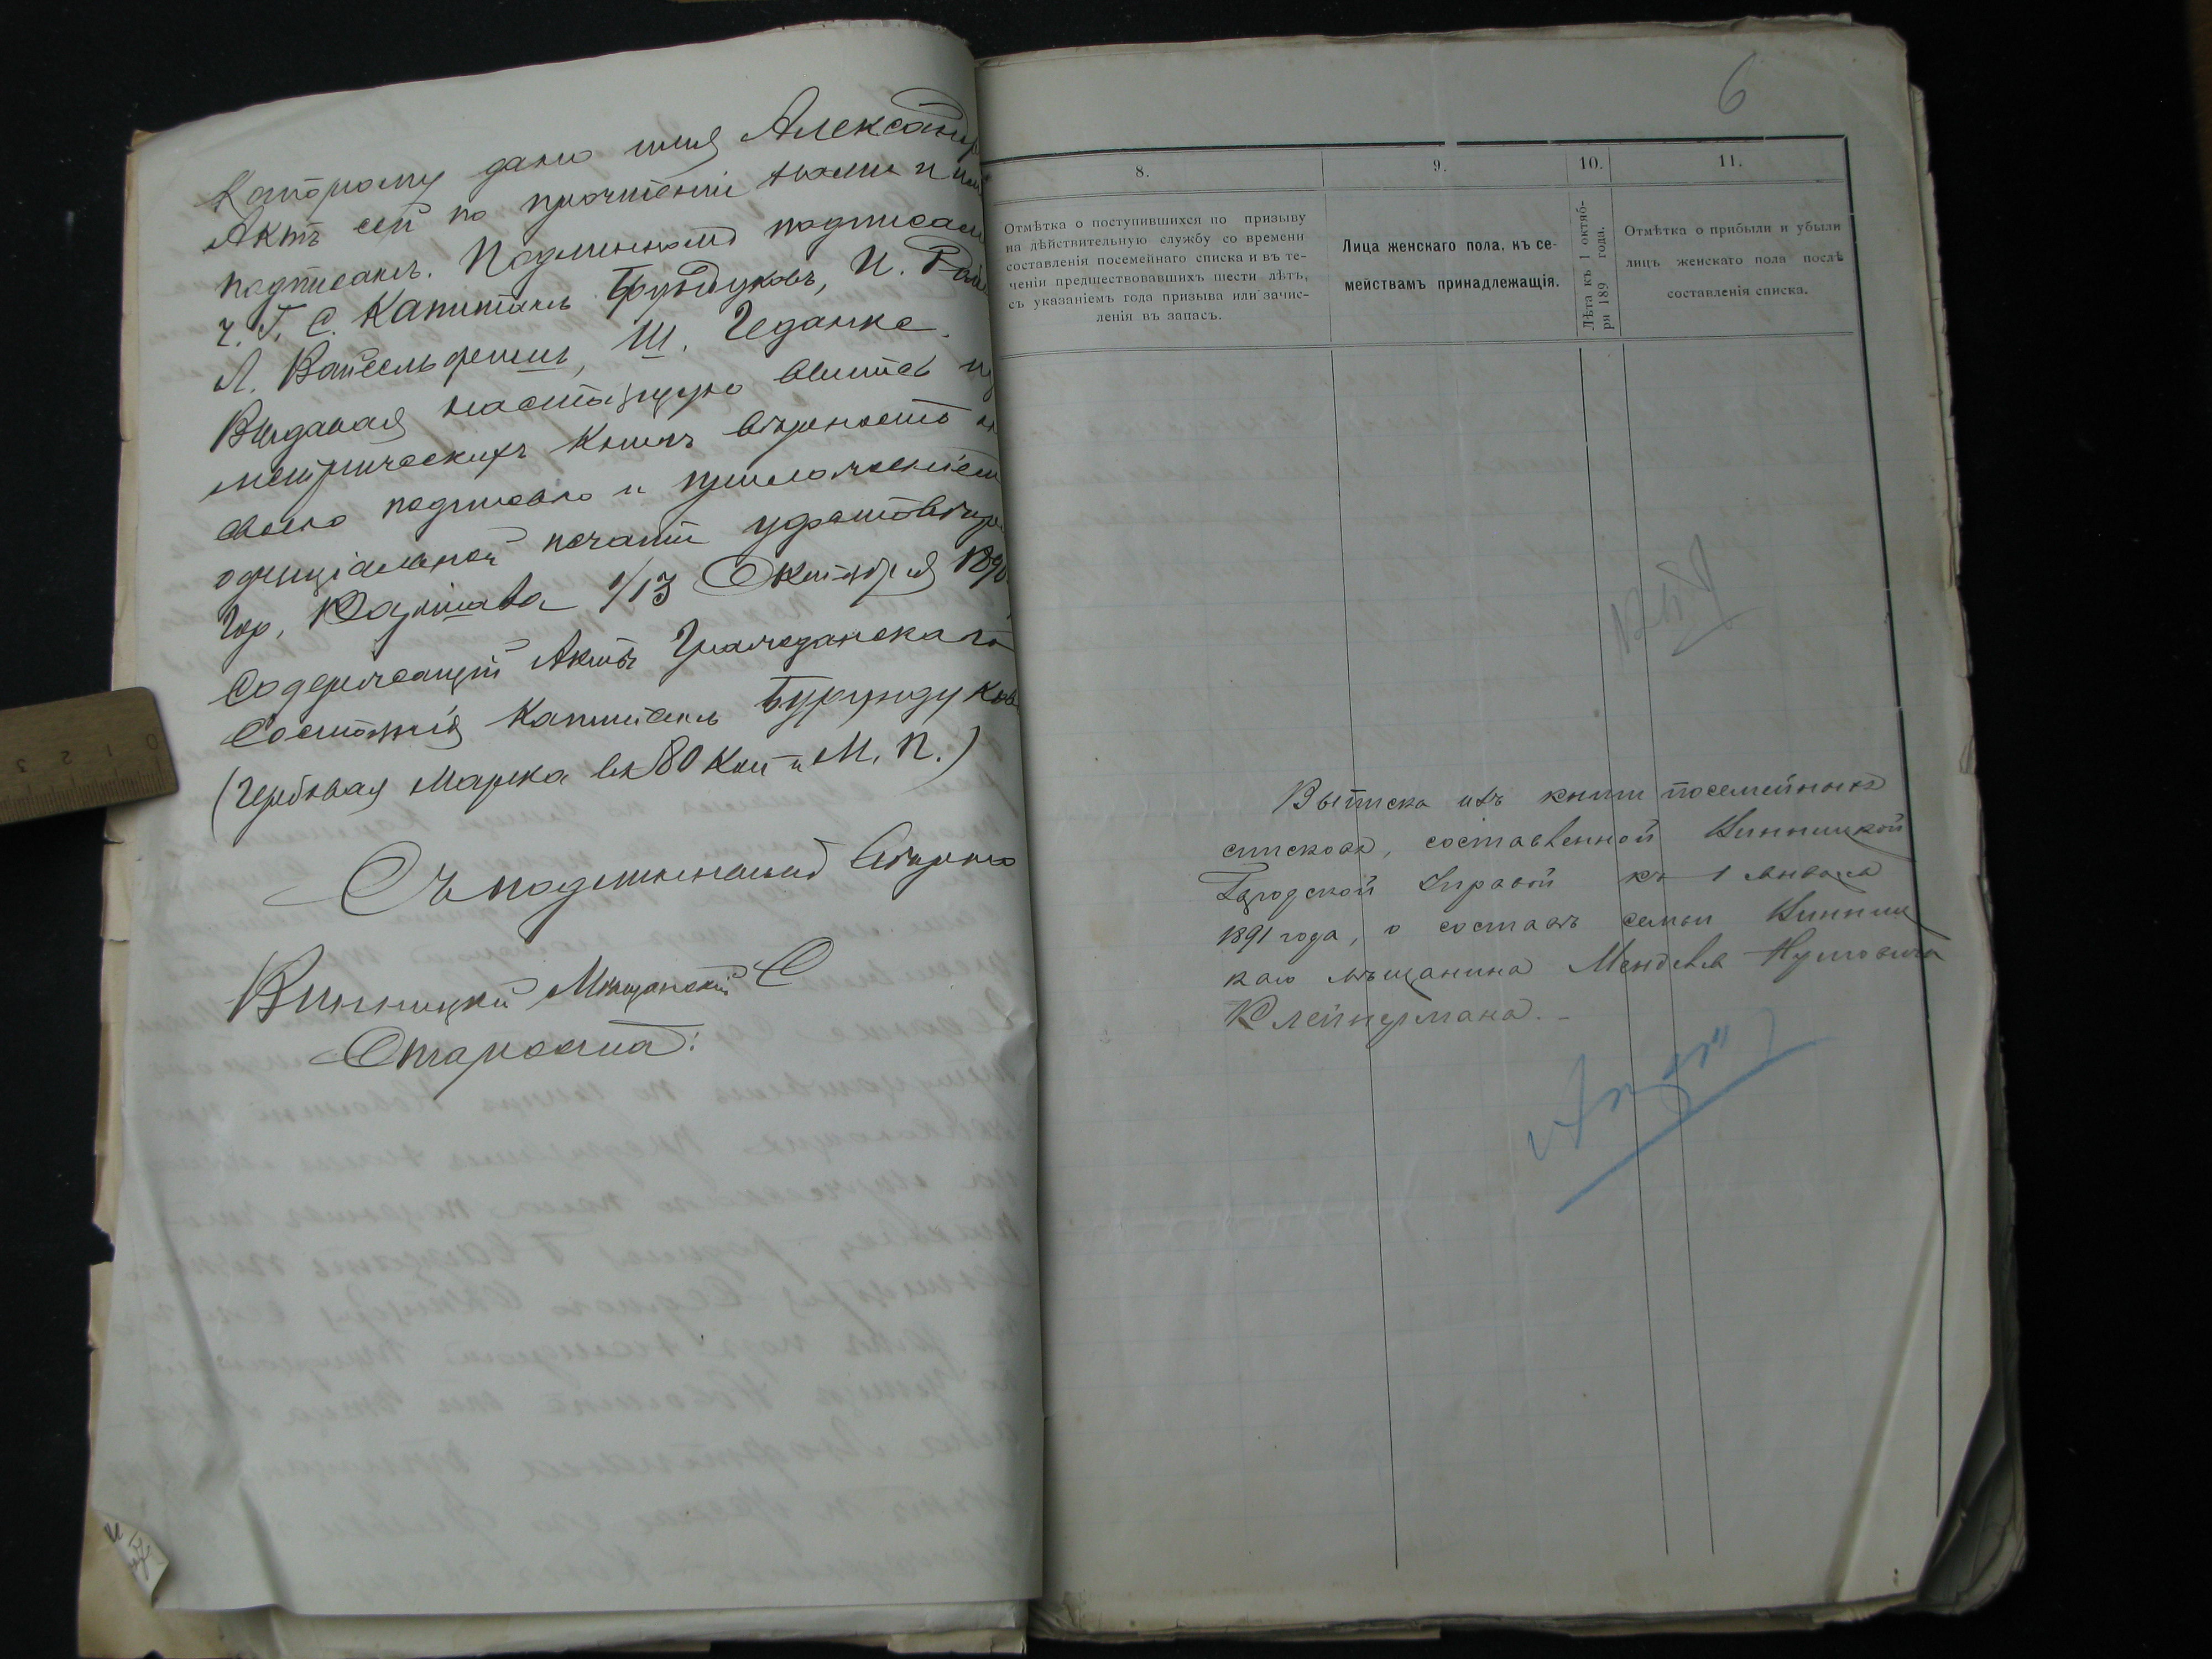 Которому дано имя Александръ
Актъ сей по прочтеніи нами и ими
подписанъ. Подлинный подписали
ч. Г. С. Капитанъ Бурундуковъ, И.
Л. Вайсельфишъ, Ш. Геданке.
Выдавая настоящую выпись изъ
метрическихъ книгъ вѣрность
своею подписью и приложеніемъ
оффиціальной печати удостовѣряю
Гор. Варшава 1/13 Октября 189
Содержащій Акты Гражданскаго
Состоянія Капитанъ Бурундуковъ
(Гербовая Марка въ 80 коп и М. П.)
Съ подлиннымъ вѣрно
Винницкій Мѣщанскій
Староста:
6
8.
9.
10.
11.
Отмѣтка о поступившихся по призыву
на дѣйствительную службу со времени
составленія посемейнаго списка и въ те-
ченіи предшествовавшихъ шести лѣтъ,
съ указаніемъ года призыва или зачис-
ленія въ запасъ.
Лица женскаго пола, къ се-
мействамъ принадлежащія.
Лѣта къ 1 октяб-
ря 189 года.
Отмѣтка о прибыли и убыли
лицъ женскаго пола послѣ
составленія списка.
Выписка изъ книги посемейныхъ
списковъ, составленной Винницкой
Городской Управой къ 1 Января
1891 года, о составѣ семьи Винниц
каго мѣщанина Менделя Нутовича
Клейнермана. -